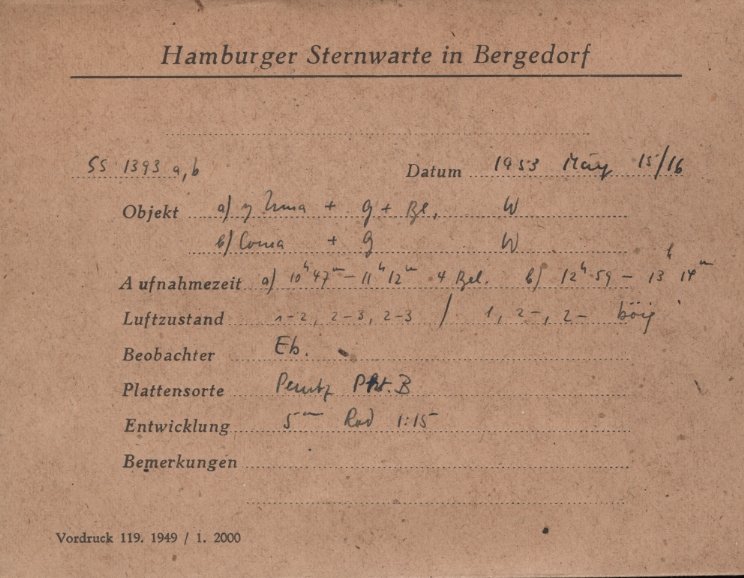 Hamburger Sternwarte in Bergedorf
SS 1393 a,b Datum 1953 März 15/16
Objekt a) η Ursa + G + Bel. W
b) Coma + G W
Aufnahmezeit a) 10h 47m – 11h 12m 4 Bel. b) 12h 59 – 13h 14m
Luftzustand 1–2, 2–3, 2–3 / 1, 2–, 2– böig
Beobachter Eb.
Plattensorte Perutz B
Entwicklung 5m Rod 1:15
Bemerkungen
Vordruck 119. 1949 / 1. 2000